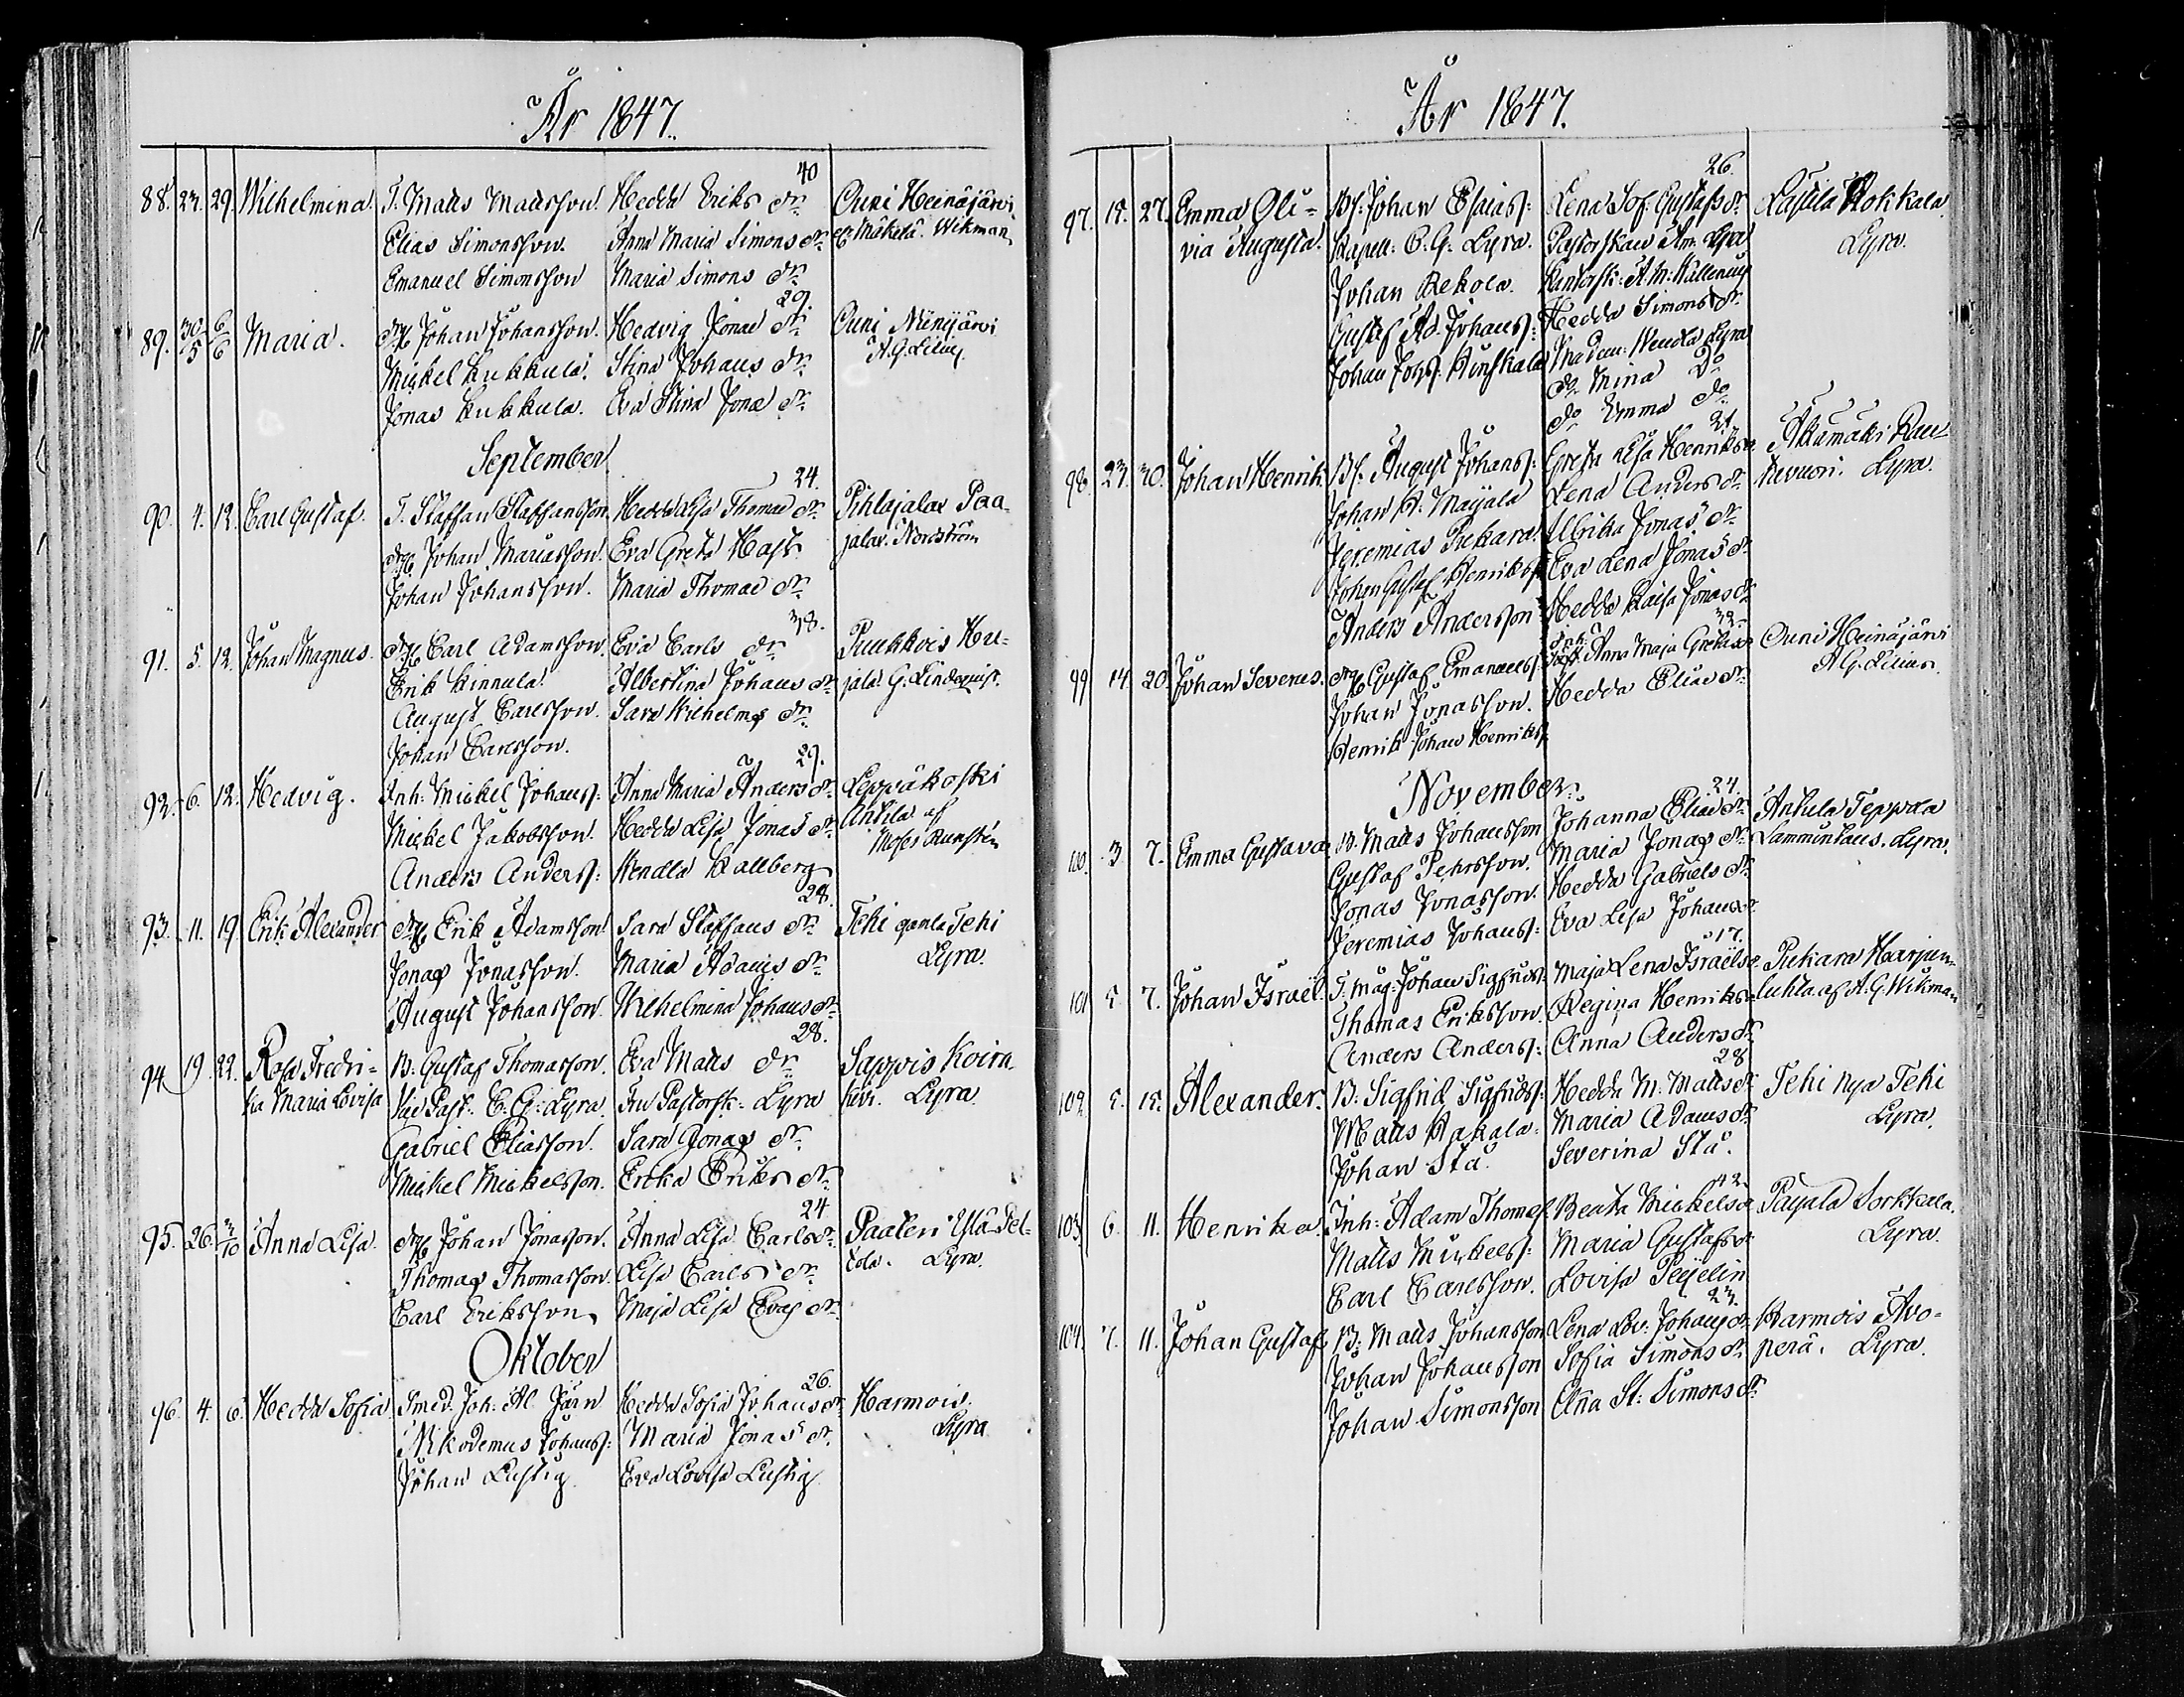 År 1847.
88. 23. 29. Wilhelmina. T. Matts Mattsson. Hedda Eriks dr. 40 Ouni Heinäjärvi
Elias Simonsson. Anna Maria Simons dr. Mäkelä. Wikman
Emanuel Simonsson Maria Simons dr.
89. 30/5 6/6 Maria. drg Johan Johansson. Hedvig Jonæ dr. 29. Ouni Niinijärvi
Mickel Kukkula. Stina Johans dr. A.G. Lilius
Jonas Kukkula. Eva Stina Jonæ dr.
September
90. 4. 12. Carl Gustaf. T. Staffan Staffansson. Hedda Lisa Thomæ dr. 24. Pihlajalax Paa-
drg Johan Mariasson. Eva Greta Hast jalax. Nordström
Johan Johansson. Maria Thomæ dr.
91. 5. 12. Johan Magnus. drg Carl Adamsson. Eva Carls dr. 38. Puukkois Hu-
Erik Kinnula. Albertina Johans dr. jala. G. Lindequist.
August Carlsson. Sara Wilhelms dr.
Johan Carlsson.
92. 6. 12. Hedvig. Inh: Mickel Johanss: Anna Maria Anders dr. 29. Leppäkoski
Mickel Jakobsson. Hedda Lisa Jonas dr. Antila af
Anders Anderss: Wendla Hallberg Moses Runstén
93. 11. 19. Erik Alexander drg Erik Adamsson Sara Staffans dr. 28. Tehi gamla Tehi
Jonas Jonasson. Maria Adams dr. Lyra.
August Johansson. Wilhelmina Johans dr.
94. 19. 22. Rosa Fredri- B: Gustaf Thomasson. Eva Matts dr. 28. Sappis Koira-
ka Maria Lovisa Vice Past: C. G: Lyra. Fru Pastorsk: Lyra kivi. Lyra.
Gabriel Eliasson. Sara Jonas dr.
Mickel Mickelsson. Erika Eriks dr.
95. 26. 3/10 Anna Lisa. drg Johan Jonasson. Anna Lisa Carls dr. 24 Paateri Ylä-Pel-
Thomas Thomasson. Lisa Carls dr. tola. Lyra.
Carl Eriksson Maja Lisa Evas dr.
Oktober
96. 4. 6. Hedda Sofia Smed. Joh: Al. Järn Hedda Sofia Johans dr. 26. Harmois.
Nikodemus Johanss: Maria Jonas dr. Lyra
Johan Lustig. Eva Lovisa Lustig
År 1847.
97. 15. 27. Emma Oli- Bs: Johan Esaiass: Lena Sof. Gustafs dr. 26. Rasula Hokkala
via Augusta. Kapell: C. G. Lyra. Pastorskan Am: Lyra Lyra.
Johan Rekola. Kantorsk: A. M: Hällenius
Gustaf Ad. Johanss: Hedda Simons dr.
Johan Johss. Kunskala Madem: Wendla Lyra
do Mina Do
do Emma do
98. 23. 30. Johan Henrik. Bs. August Johanss: Greta Lisa Henriks dr. 21. Alkumäki Rau-
Johan H. Maijala Lena Anders dr. tavuori. Lyra.
Jeremias Pukara. Ulrika Jonas dr.
Johan Gustaf Henrikss. Eva Lena Jonas dr.
Anders Andersson Hedda Kaisa Jonas dr.
99 14. 20. Johan Severus. drg Gustaf Emanuelss: Anna Maja Gretas dr. 32. Ouni Heinäjärvi
Johan Jonasson. Hedda Eliæ dr. A G. Lilius.
Henrik Johan Henrikss.
November.
100. 3. 7. Emma Gustava B. Matts Johansson Johanna Eliæ dr. 24. Anttula Teppola
Gustaf Pehrsson. Maria Jonas dr. Lamminhaus. Lyra.
Jonas Jonasson. Hedda Gabriels dr.
Jeremias Johanss: Eva Lisa Johans dr.
101 5. 7. Johan Israel. T. Mag: Johan Sigfridss. Maja Lena Israels dr. 17. Pukara Haarjun-
Thomas Eriksson. Regina Henriks dr. luhta. af A. G. Wikman
Anders Anderss: Anna Anders dr.
102. 5. 15. Alexander. B: Sigfrid Sigfridss: Hedda M: Matts dr. 28 Tehi Nya Tehi
Matts Hakala. Maria Adams dr. Lyra.
Johan Stå. Severina Stå.
103. 6. 11. Henrika. Inh: Adam Thomass. Beata Mickels dr. 42. Pajala Sorkkala.
Matts Mickelss: Maria Gustafs dr. Lyra.
Carl Carlsson. Lovisa Peijelin
104. 7. 11. Johan Gustaf B: Matts Johansson Lena Lov: Johans dr. 23. Harmois Avo-
Johan Johansson Sofia Simons dr. perä. Lyra.
Johan Simonsson Anna St: Simons dr.